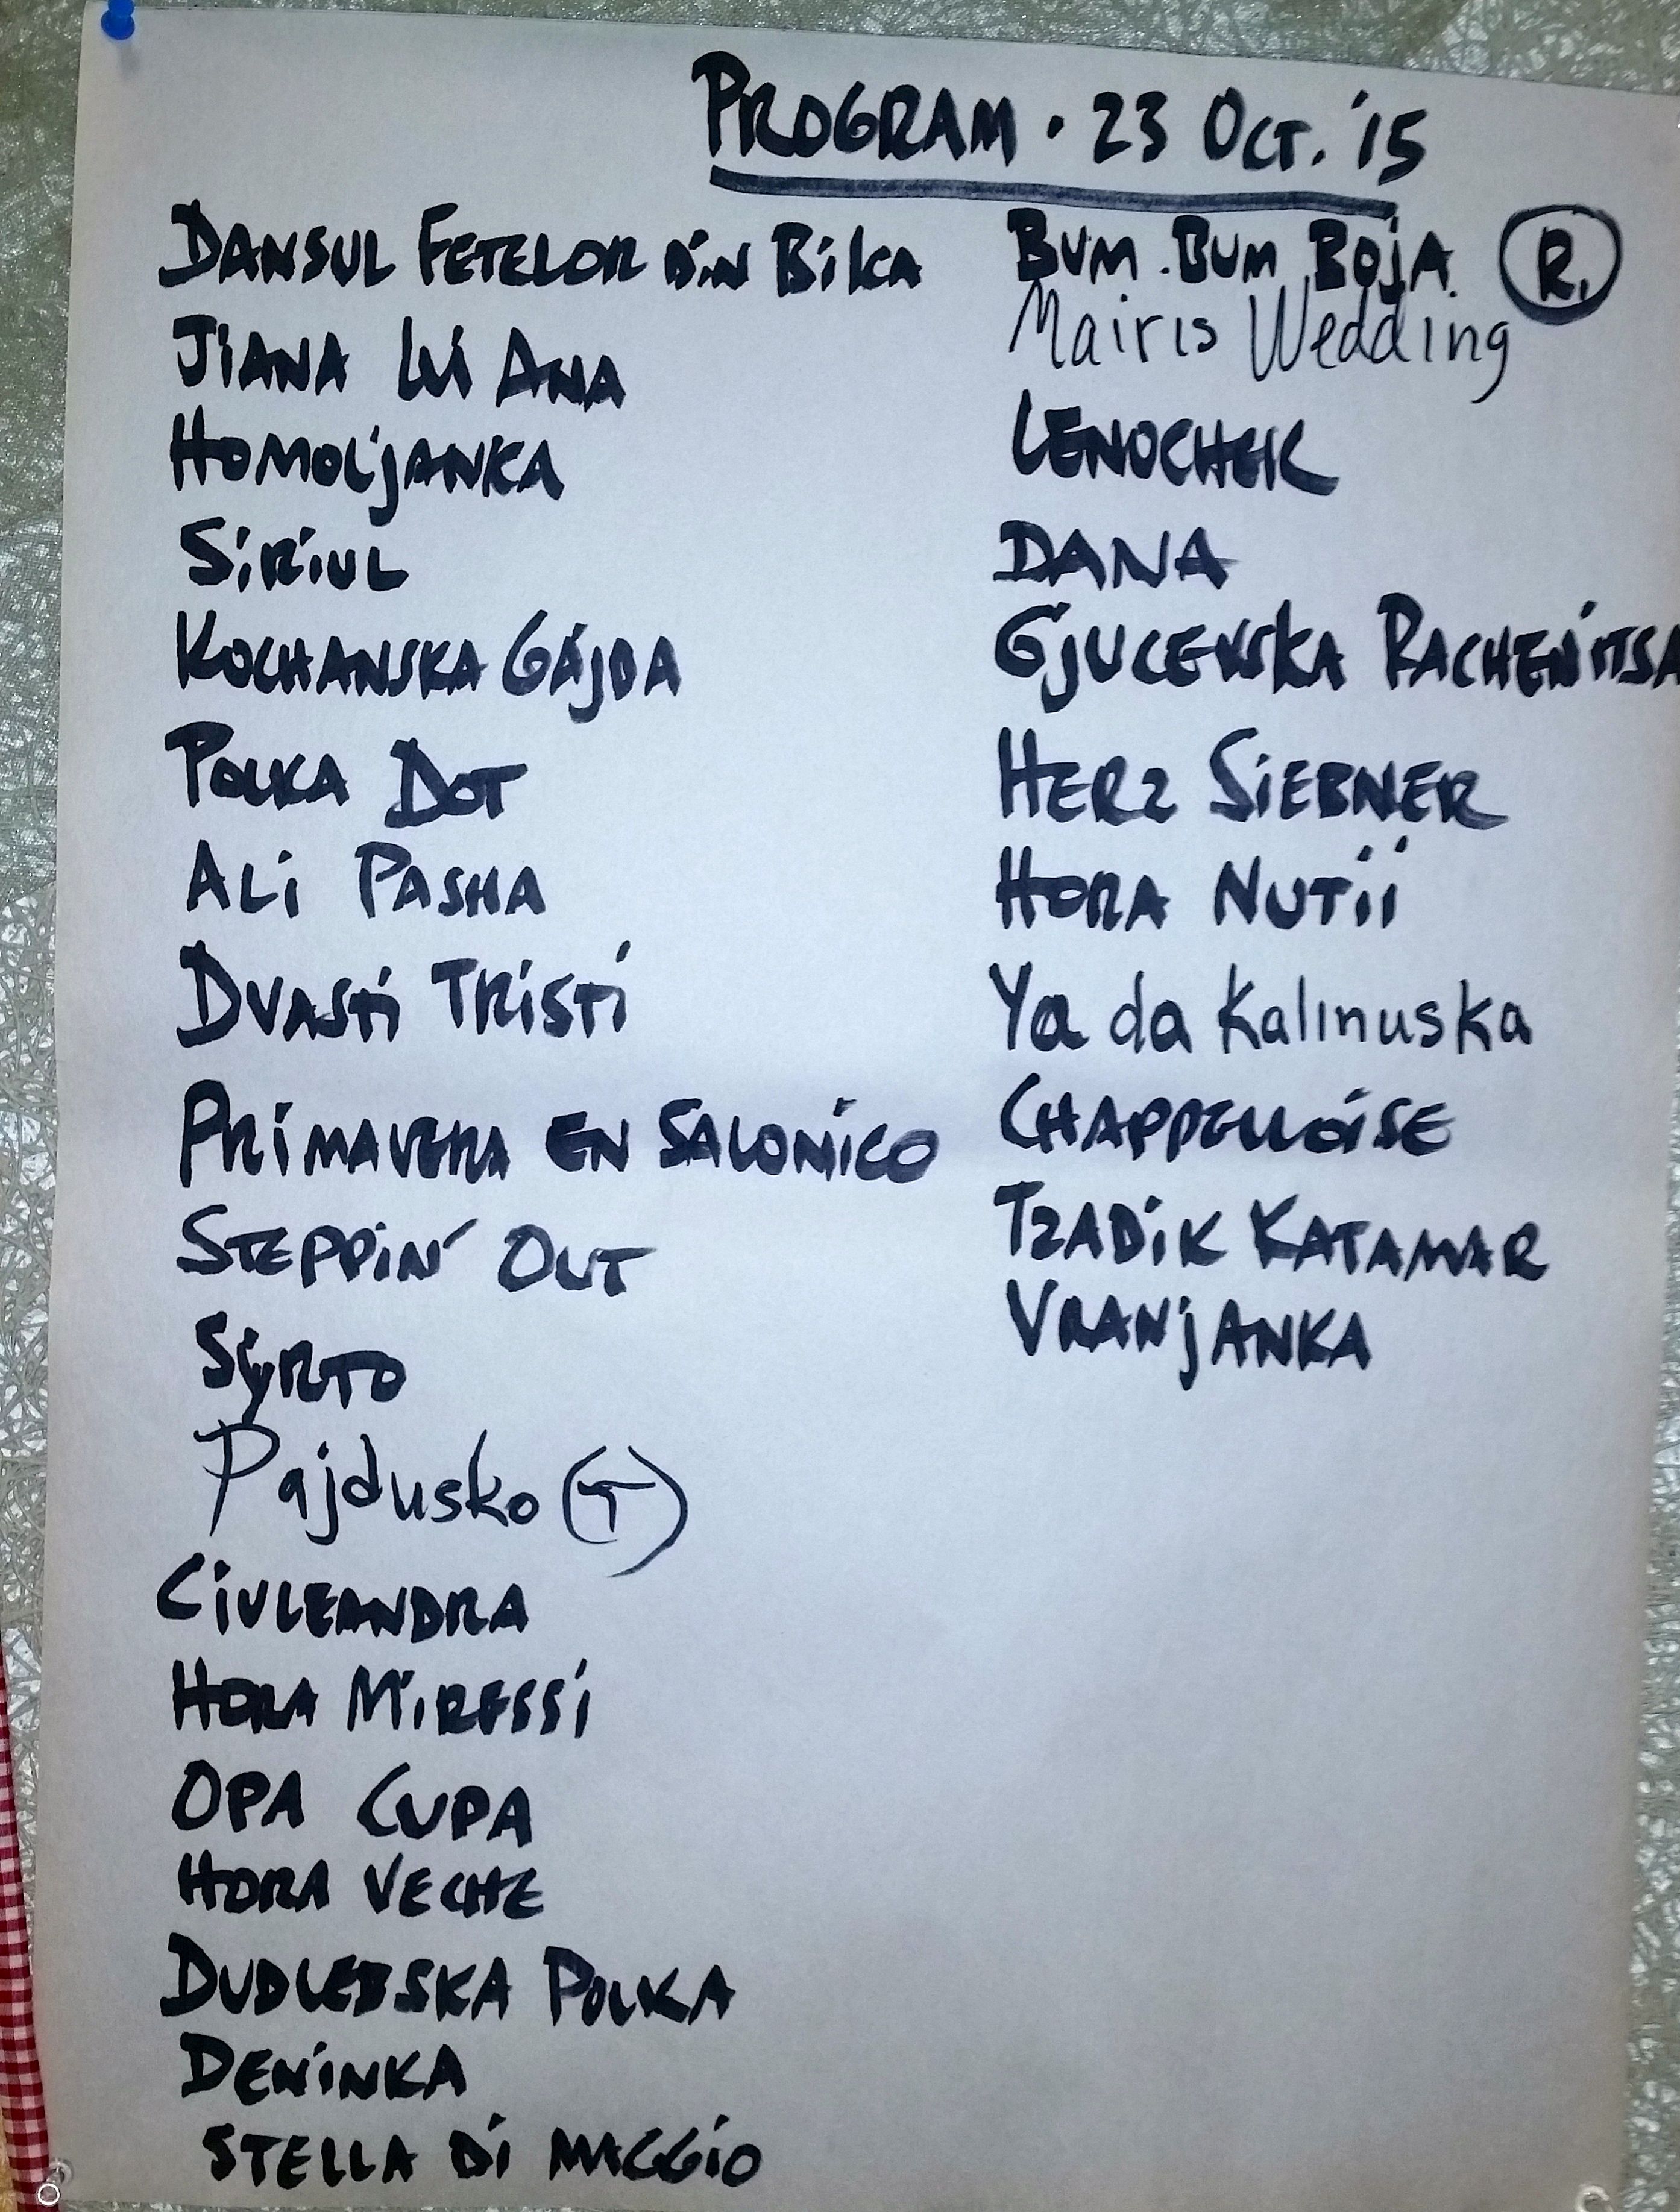 PROGRAM · 23 OCT. '15
DANSUL FETELOR DIN BILCA
JIANA LUI ANA
HOMOLJANKA
SIRIUL
KOCHANSKA GAJDA
POLKA DOT
ALI PASHA
DVASTI TRISTI
PRIMAVERA EN SALONICO
STEPPIN' OUT
SYRTO
Pajdusko (T)
CIULEANDRA
HORA MIRESSI
OPA CUPA
HORA VECHE
DUDLEBSKA POLKA
DENINKA
STELLA DI MAGGIO
BUM.BUM BOJA. R.
Mairis Wedding
LENOCHEK
DANA
GJUCEVSKA RACHENITSA
HERZ SIEBNER
HORA NUTII
Ya da Kalinuska
CHAPPELLOISE
TZADIK KATAMAR
VRANJANKA